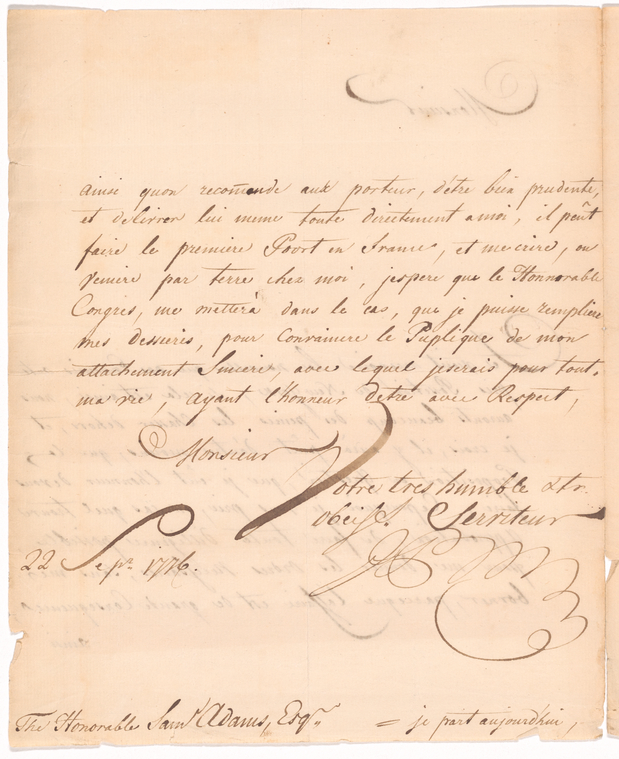 ainsi quon recomende aux porteur, d'etre bien prudente,
et delivrer lui meme toute directement a moi, il peût
faire le premiere Poort en France, et mecrire, ou
venire par terre chez moi, jespere que le Honnorable
Congres, me metterà dans le cas, que je puisse remplire
mes dessieins, pour convaincre le Puplique de mon
attachement Sincere, avec lequel jeserais pour tout.
ma vie, ayant l'Honneur detre avec Respect,
Monsieur
Votre tres humble & tr.
obeiss. Serviteur
22 Sepr. 1776.
The Honorable Saml. Adams, Esqr. = je part aujourd'hui,